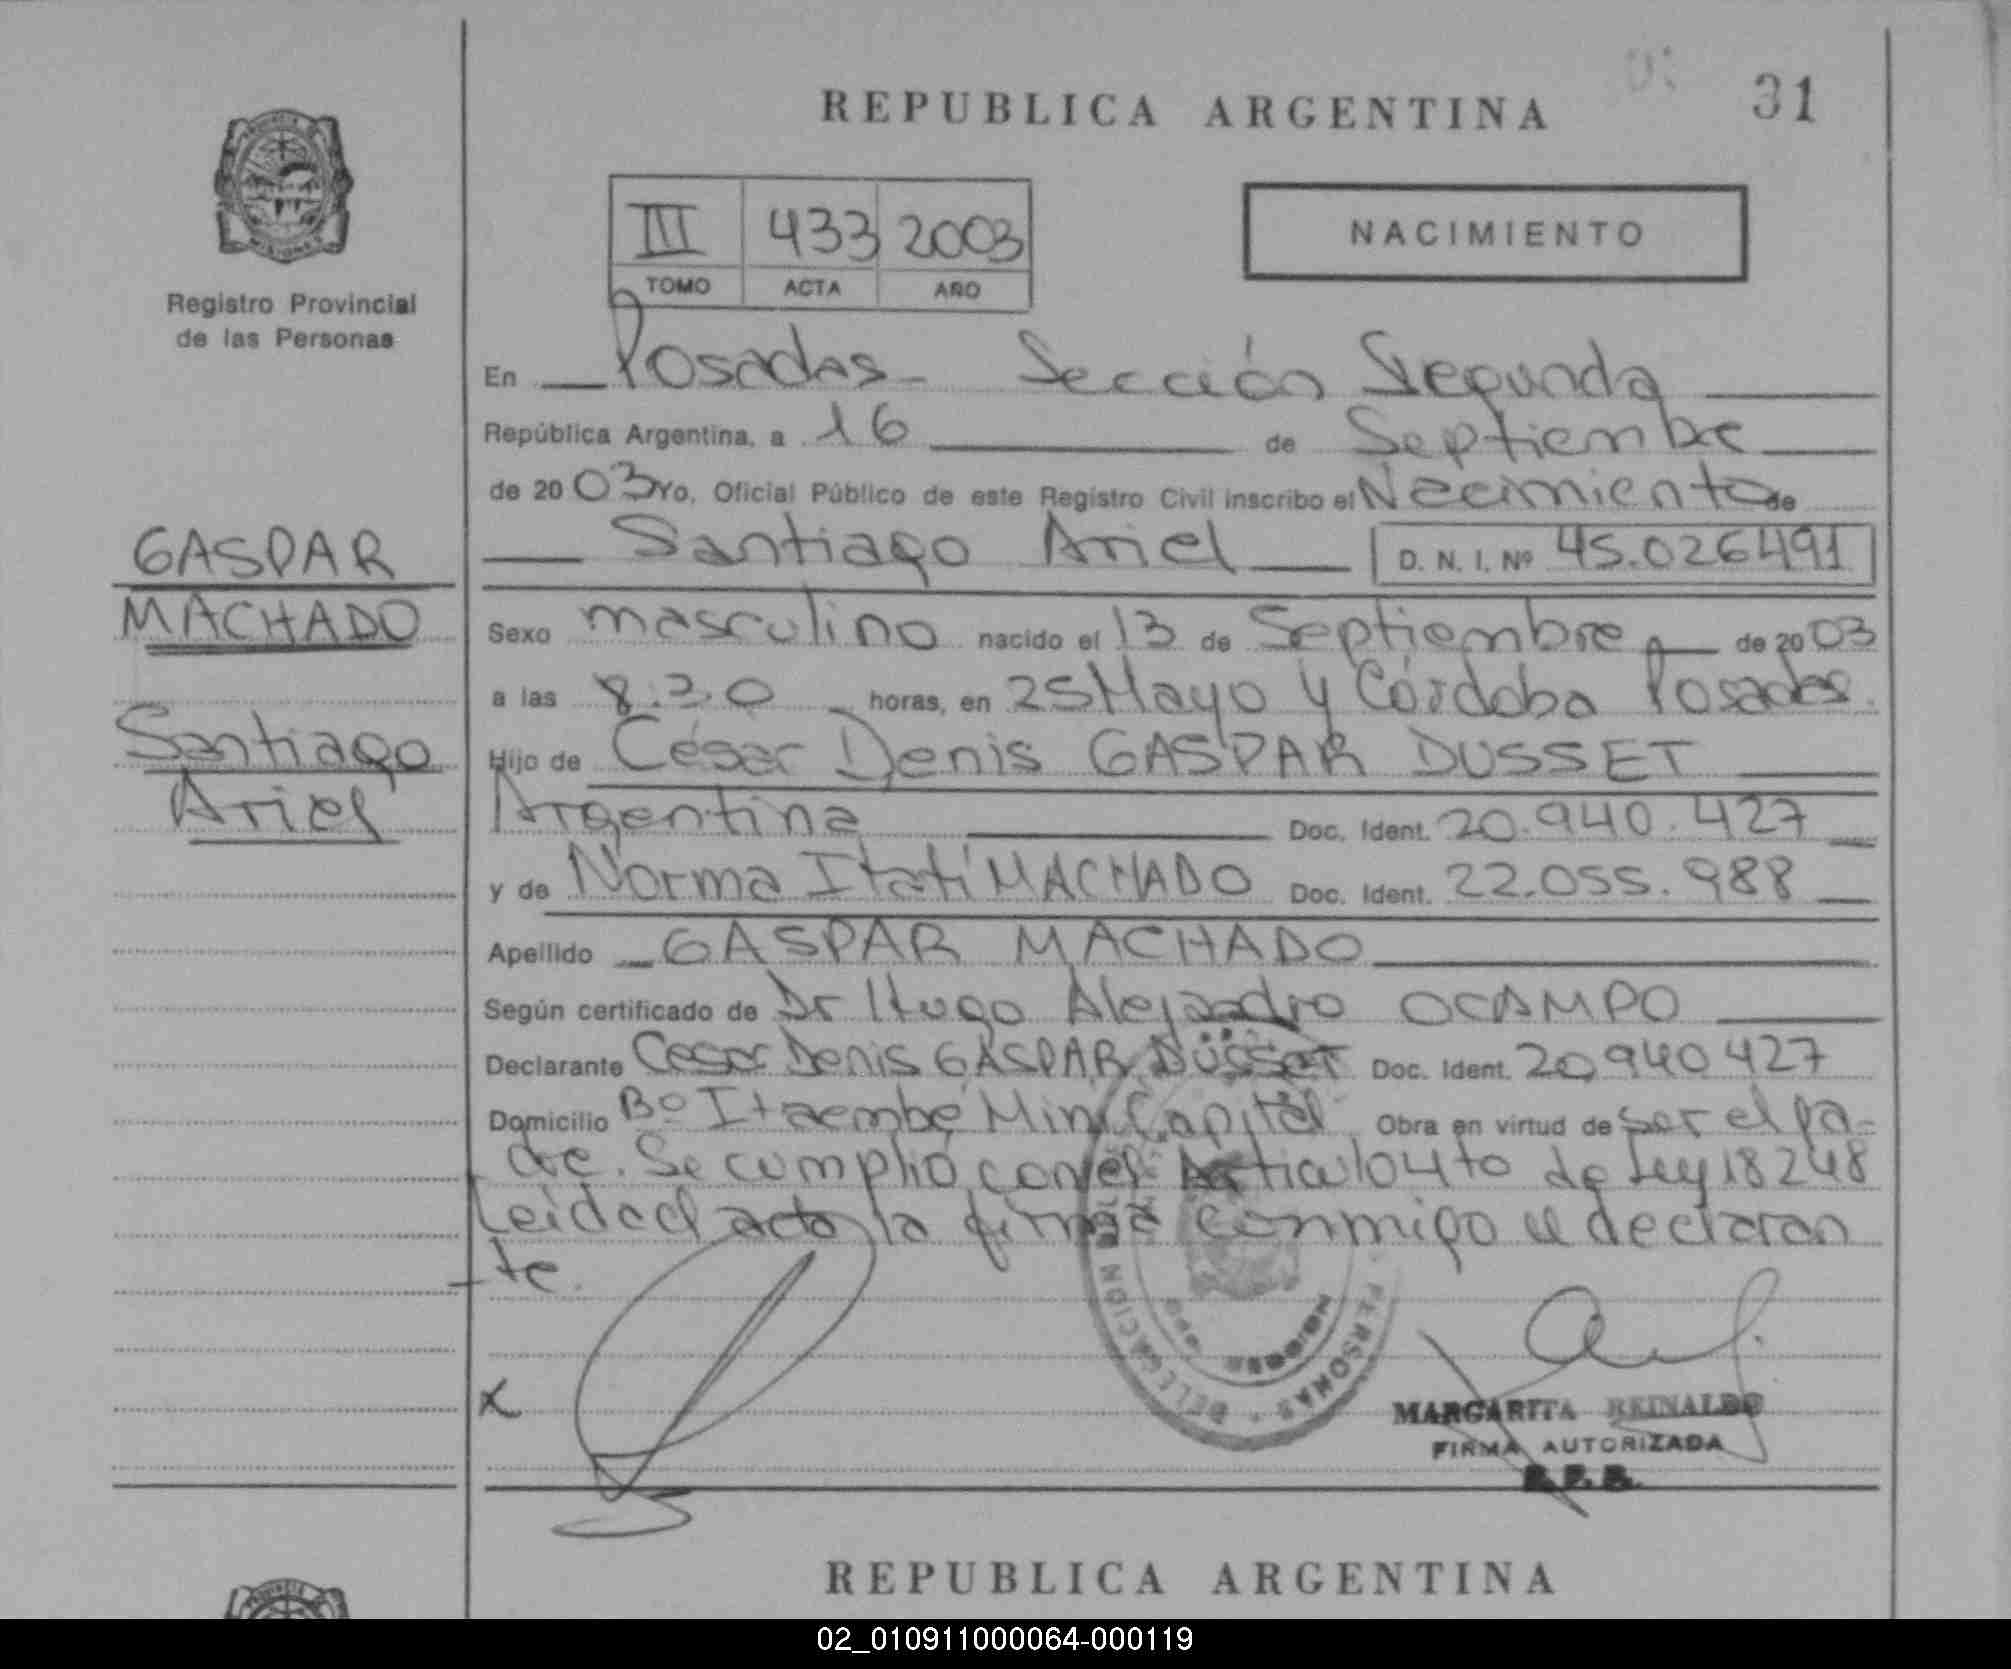 REPUBLICA ARGENTINA
31
PROVINCIA DE
MISIONES
Registro Provincial
de las Personas
III 433 2003
TOMO ACTA AÑO
NACIMIENTO
En Posadas - Sección Segunda
República Argentina, a 16 de Septiembre
de 2003 Yo, Oficial Público de este Registro Civil inscribo el Nacimiento de
Santiago Ariel D. N. I. Nº 45.026491
GASPAR
MACHADO
Santiago
Ariel
Sexo masculino nacido el 13 de Septiembre de 2003
a las 8:30 horas, en 25 Mayo y Córdoba Posadas.
Hijo de César Denis GASPAR DUSSET
Argentina Doc. Ident. 20.940.427
y de Norma Itatí MACHADO Doc. Ident. 22.055.988
Apellido GASPAR MACHADO
Según certificado de Dr Hugo Alejandro OCAMPO
Declarante Cesar Denis GASPAR DUSSET Doc. Ident. 20,940427
Domicilio Bº Itaembé Mini Capital Obra en virtud de ser el pa-
dre. Se cumplió con el Articulo 4to de Ley 18248
Leida el acta la firma conmigo el declaran
-te.
DELEGACION
PERSONAS
MISIONES
X
MARGARITA REINALDO
FIRMA AUTORIZADA
R.P.P.
REPUBLICA ARGENTINA
02_010911000064-000119